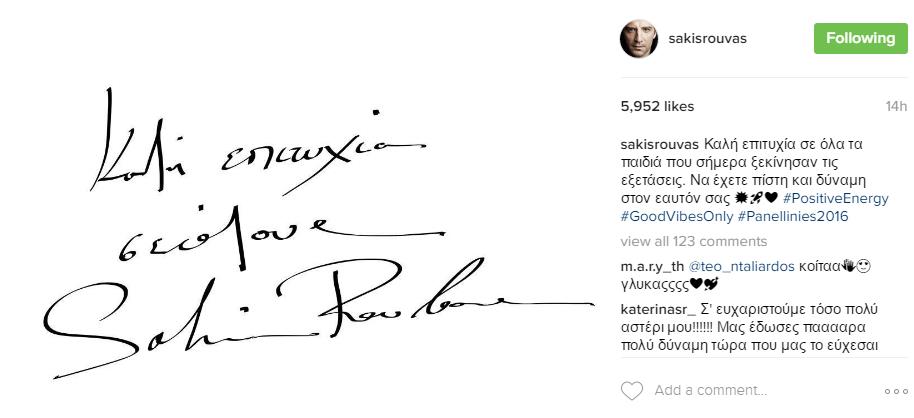 Καλή επιτυχία
σε όλους
Sakis Rouvas
sakisrouvas
Following
5,952 likes
14h
sakisrouvas Καλή επιτυχία σε όλα τα
παιδιά που σήμερα ξεκίνησαν τις
εξετάσεις. Να έχετε πίστη και δύναμη
στον εαυτόν σας ✹🚀♥ #PositiveEnergy
#GoodVibesOnly #Panellinies2016
view all 123 comments
m.a.r.y_th @teo_ntaliardos κοίταα👋🙄
γλυκαςςςς♥💘
katerinasr_ Σ' ευχαριστούμε τόσο πολύ
αστέρι μου!!!!!! Μας έδωσες παααρα
πολύ δύναμη τώρα που μας το εύχεσαι
Add a comment...